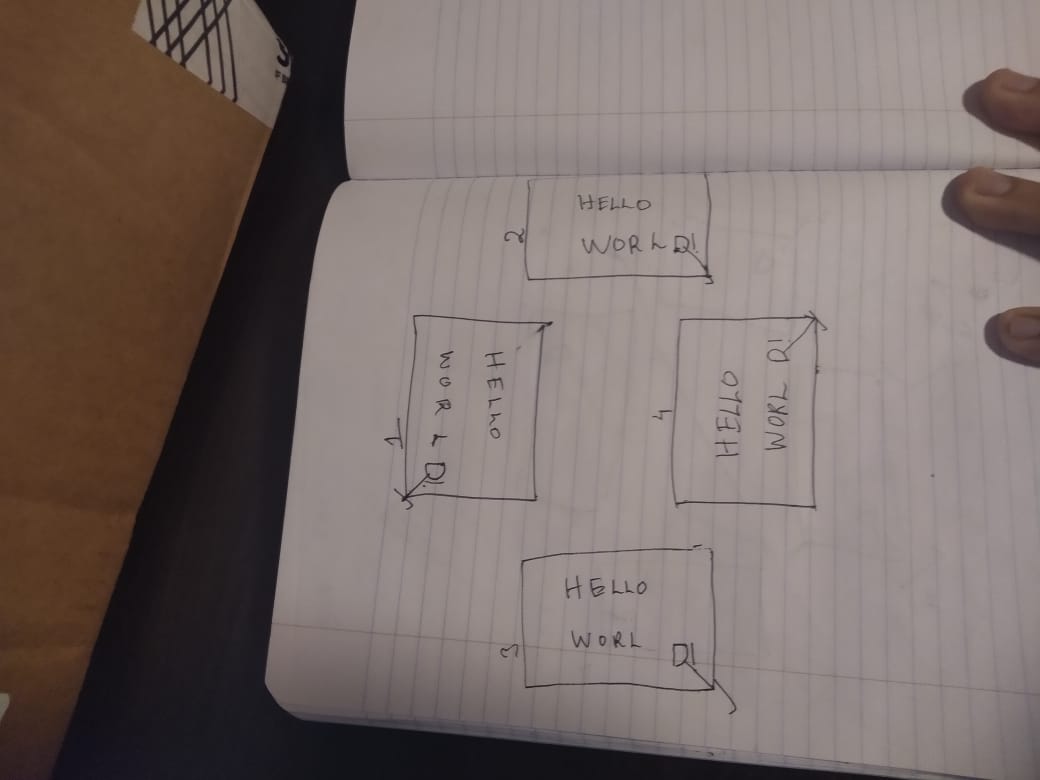 2
HELLO
WORLD!
1
HELLO
WORLD!
4
HELLO
WORLD!
3
HELLO
WORL D!